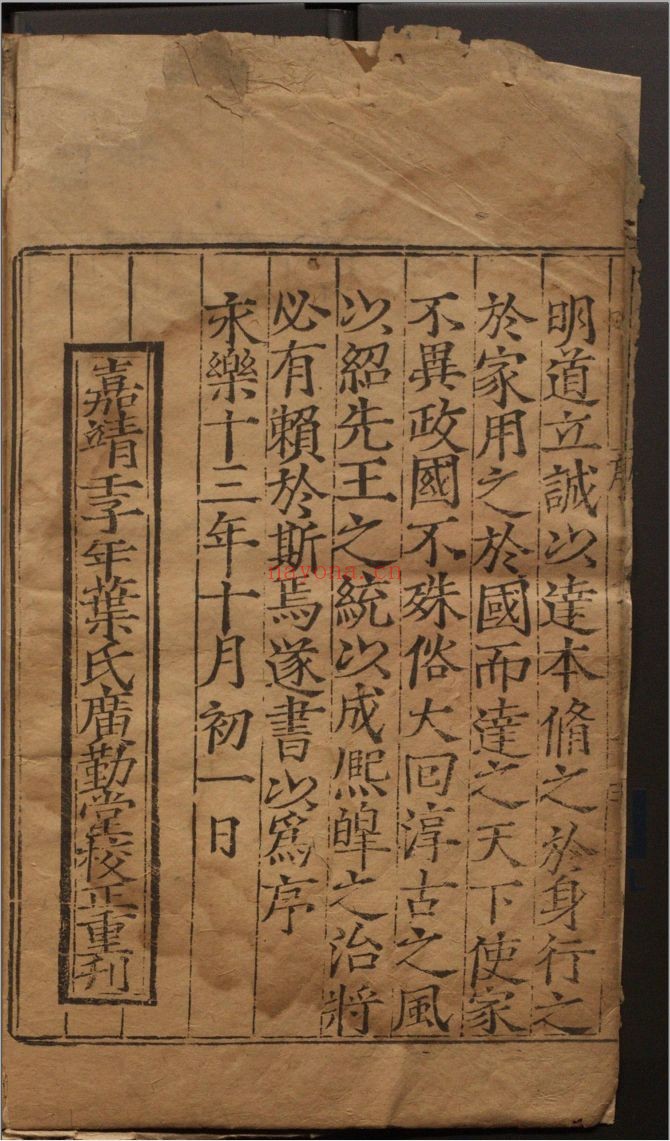 明道立誠以達本脩之於身行之
於家用之於國而達之天下使家
不異政國不殊俗大回淳古之風
以紹先王之統以成熈皥之治將
必有賴於斯焉遂書以爲序
永樂十三年十月初一日
嘉靖壬子年葉氏廣勤堂校正重刊